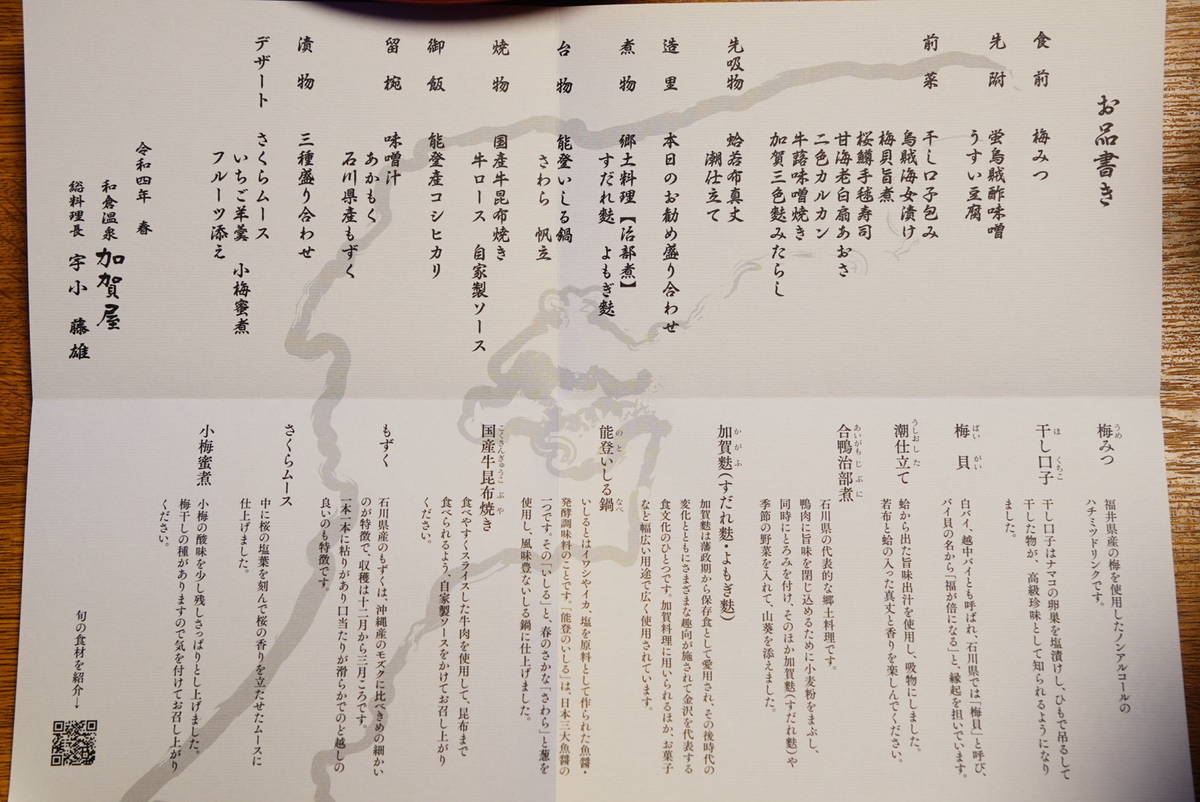 お品書き
食前 梅みつ
先附 蛍烏賊酢味噌
うすい豆腐
前菜 干し口子包み
烏賊海女漬け
梅貝旨煮
桜鱒手毬寿司
甘海老白扇あおさ
二色カルカン
牛蕗味噌焼き
加賀三色麩みたらし
先吸物 蛤若布真丈
潮仕立て
造里 本日のお勧め盛り合わせ
煮物 郷土料理【治部煮】
すだれ麩 よもぎ麩
台物 能登いしる鍋
さわら 帆立
焼物 国産牛昆布焼き
牛ロース 自家製ソース
御飯 能登産コシヒカリ
留椀 味噌汁
あかもく
石川県産もずく
漬物 三種盛り合わせ
デザート さくらムース
いちご羊羹 小梅蜜煮
フルーツ添え
令和四年 春
和倉温泉 加賀屋
総料理長 宇小 藤雄
梅みつ
うめ
福井県産の梅を使用したノンアルコールの
ハチミツドリンクです。
干し口子
ほ くちこ
干し口子はナマコの卵巣を塩漬けし、ひもで吊るして
干した物が、高級珍味として知られるようになり
ました。
梅貝
ばい がい
白バイ、越中バイとも呼ばれ、石川県では「梅貝」と呼び、
バイ貝の名から「福が倍になる」と、縁起を担いでいます。
潮仕立て
うしおした
蛤から出た旨味出汁を使用し、吸物にしました。
若布と蛤の入った真丈と香りを楽しんでください。
合鴨治部煮
あいがもじぶに
石川県の代表的な郷土料理です。
鴨肉に旨味を閉じ込めるために小麦粉をまぶし、
同時にとろみを付け、そのほか加賀麩(すだれ麩)や
季節の野菜を入れて、山葵を添えました。
加賀麩(すだれ麩・よもぎ麩)
かがふ
加賀麩は藩政期から保存食として愛用され、その後時代の
変化とともにさまざまな趣向が施されて金沢を代表する
食文化のひとつです。加賀料理に用いられるほか、お菓子
など幅広い用途で広く使用されています。
能登いしる鍋
のと なべ
いしるとはイワシやイカ、塩を原料として作られた魚醤・
発酵調味料のことです。「能登のいしる」は、日本三大魚醤の
一つです。その「いしる」と、春のさかな「さわら」と葱を
使用し、風味豊ないしる鍋に仕上げました。
国産牛昆布焼き
こくさんぎゅうこぶや
食べやすくスライスした牛肉を使用して、昆布まで
食べられるよう、自家製ソースをかけてお召し上がり
ください。
もずく
石川県産のもずくは、沖縄産のモズクに比べきめの細かい
のが特徴で、収穫は十二月から三月ごろです。
一本一本に粘りがあり口当たりが滑らかでのど越しの
良いのも特徴です。
さくらムース
中に桜の塩葉を刻んで桜の香りを立たせたムースに
仕上げました。
小梅蜜煮
小梅の酸味を少し残しさっぱりとし上げました。
梅干しの種がありますので気を付けてお召し上がり
ください。
旬の食材を紹介→